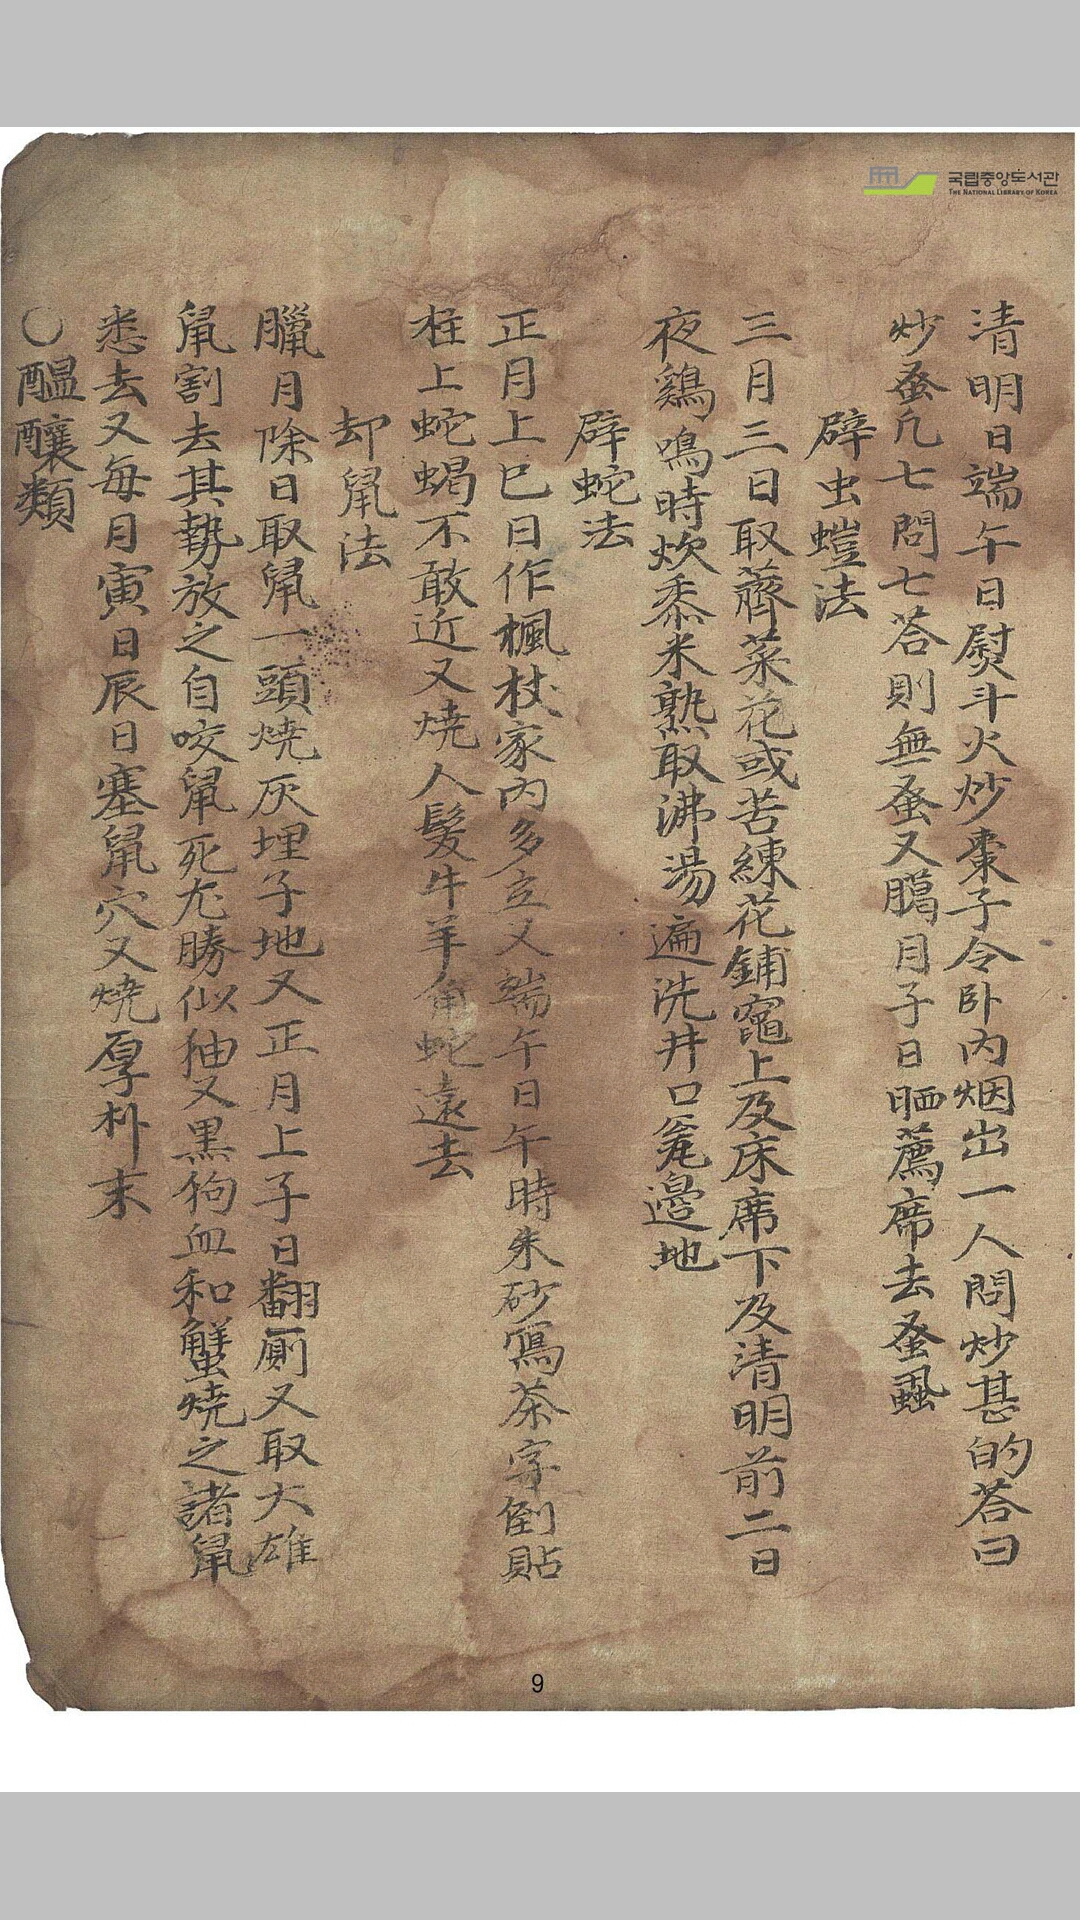 국립중앙도서관
THE NATIONAL LIBRARY OF KOREA
清明日端午日熨斗火炒棗子令卧内烟出一人問炒甚的荅曰
炒蚤凢七問七荅則無蚤又臈月子日晒薦席去蚤蝨
辟虫螘法
三月三日取薺菜花或苦練花鋪竈上及床席下及清明前二日
夜鷄鳴時炊黍米熟取沸湯遍洗井口瓮邊地
辟蛇法
正月上巳日作楓杖家内多立又端午日午時朱砂寫茶字倒貼
柱上蛇蝎不敢近又燒人髮牛羊角蛇遠去
却鼠法
臘月除日取鼠一頭燒灰埋子地又正月上子日翻厠又取大雄
鼠割去其勢放之自咬鼠死尤勝似猫又黒狗血和蟹燒之諸鼠
悉去又每月寅日辰日塞鼠穴又燒厚朴末
○醞釀類
9